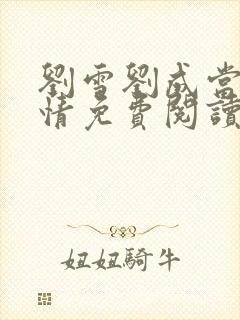 劉雪劉成當
情免費閱讀
妞妞騎牛